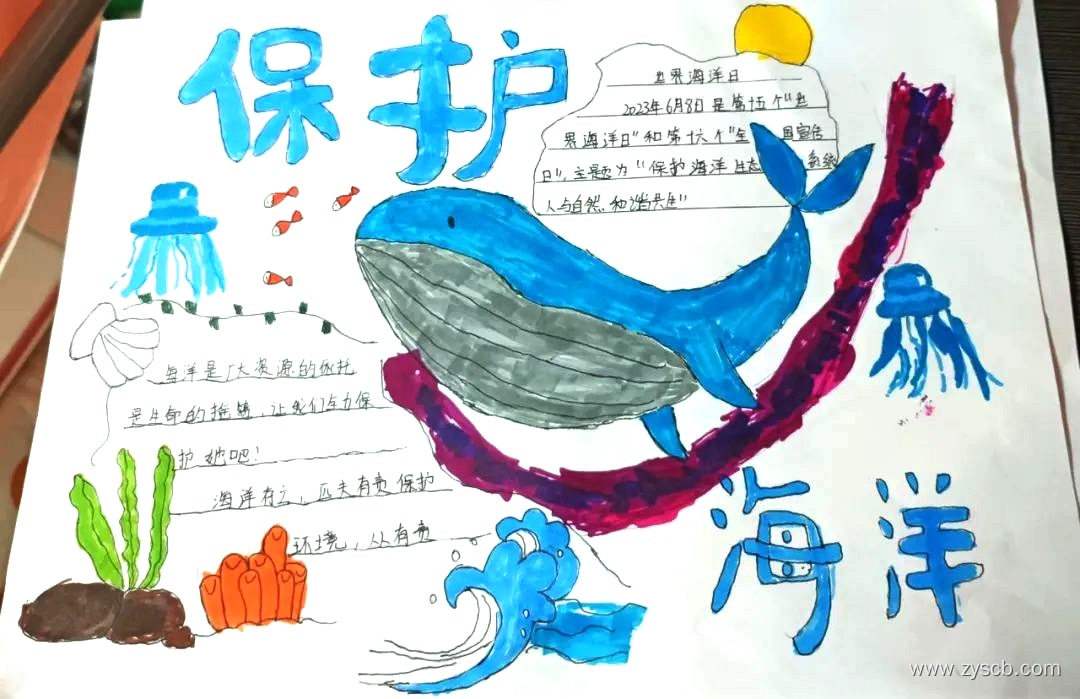 保护
世界海洋日
2023年6月8日是第十五个“世
界海洋日”和第十六个“全 国宣传
日”，主题为“保护海洋生态 系统
人与自然和谐共生”
海洋是广大资源的依托
是生命的摇篮，让我们全力保
护她吧！
海洋有云，匹夫有责 保护
环境，从 有责
海洋
www.zyscb.com